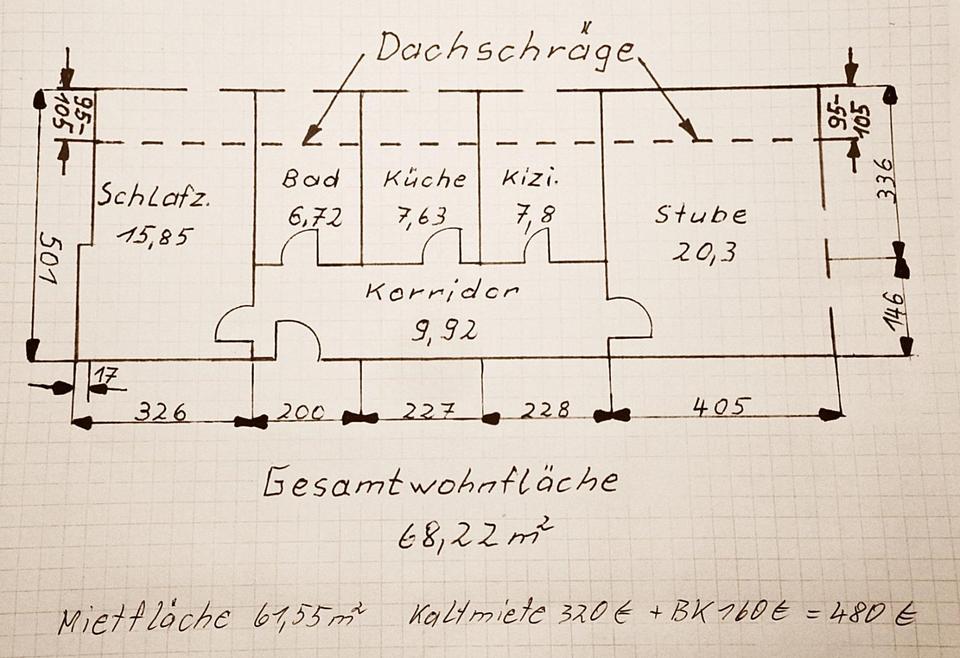 Dachschräge
95-
105
95-
105
336
Schlafz.
15,85
Bad
6,72
Küche
7,63
Kizi.
7,8
Stube
20,3
501
Korridor
9,92
146
17
326
200
227
228
405
Gesamtwohnfläche
68,22 m²
Mietfläche 61,55 m² Kaltmiete 320 € + BK 160 € = 480 €